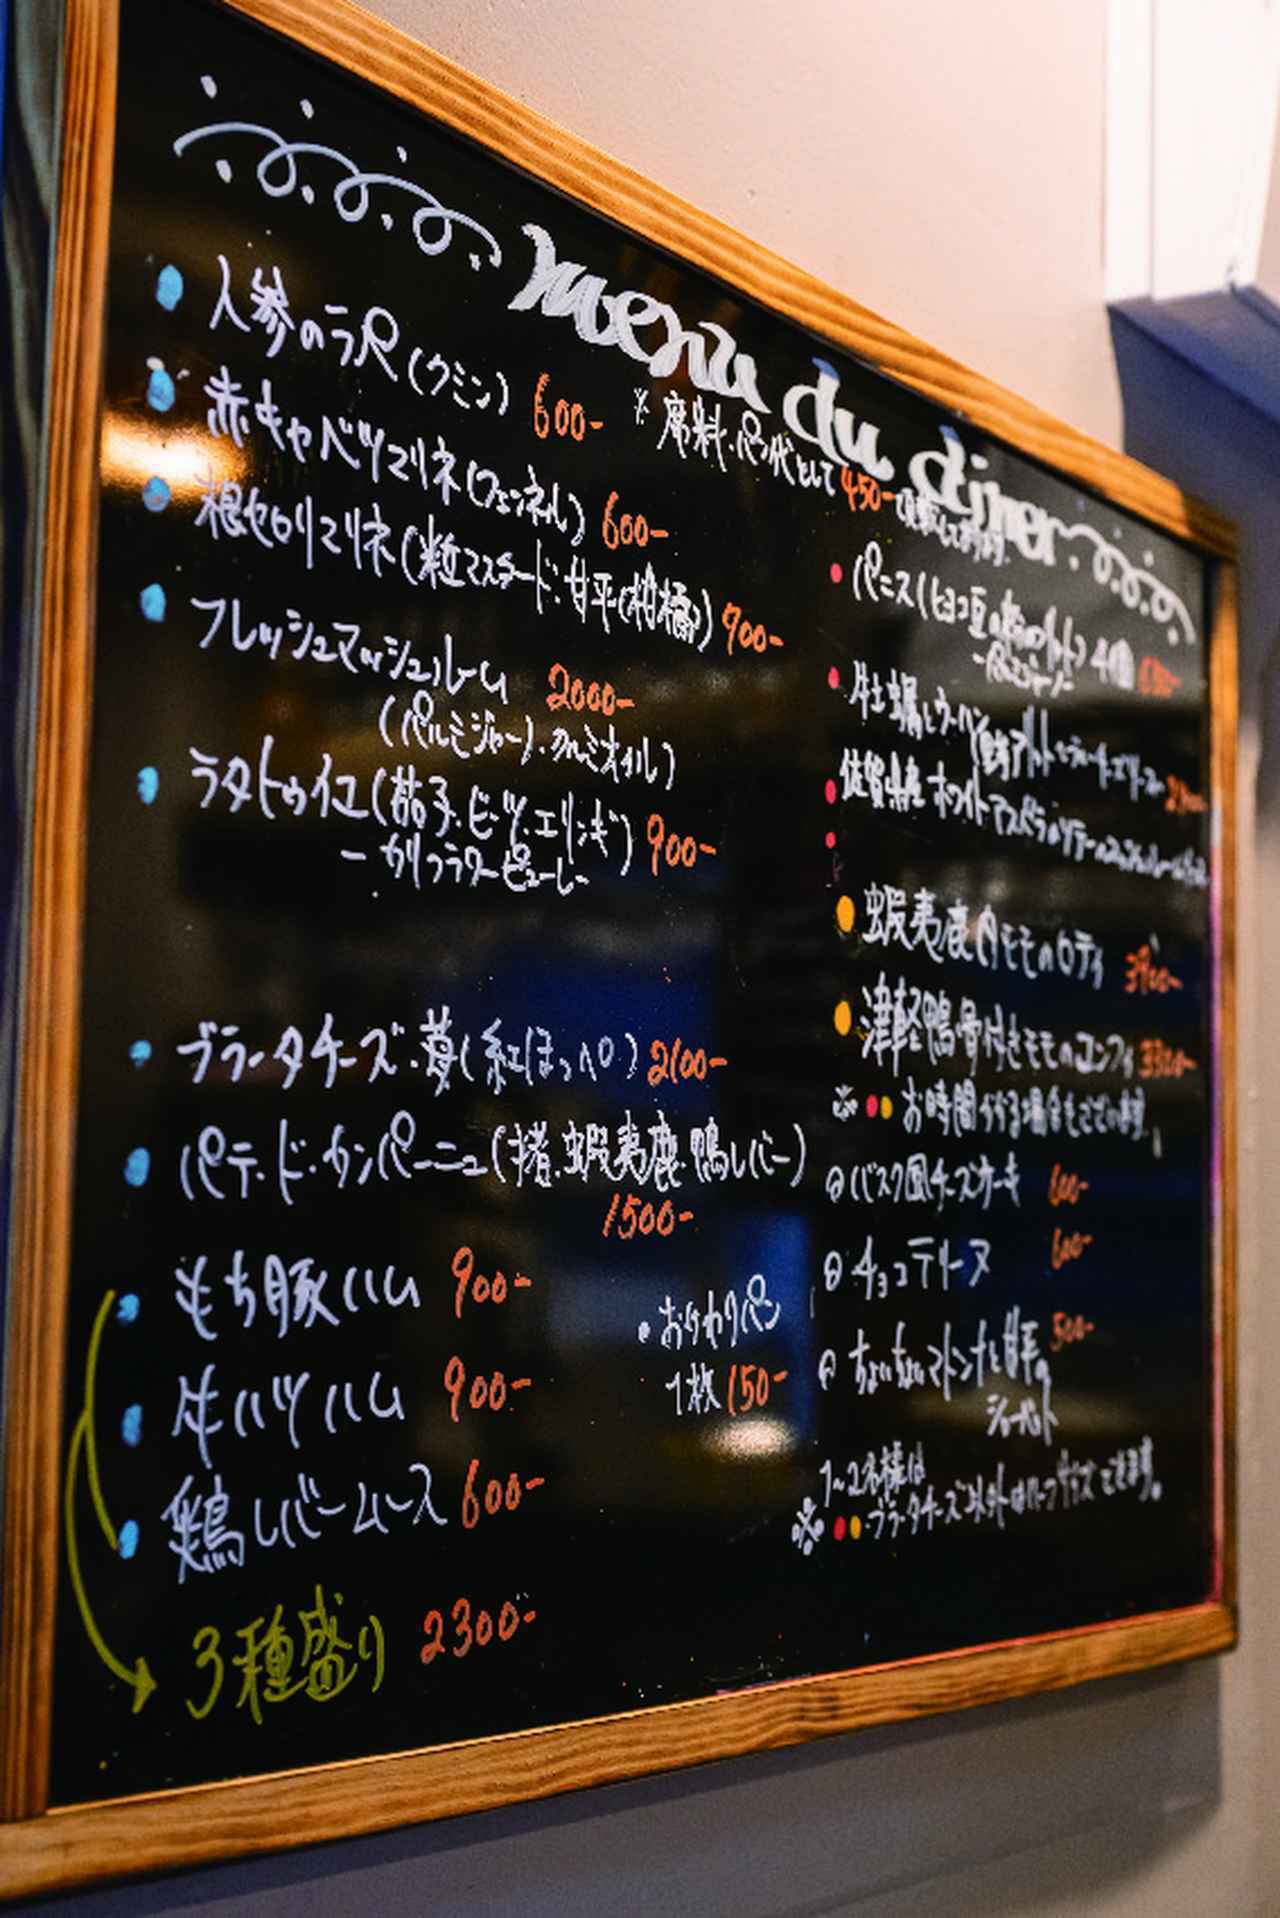 menu du diner
人参のラペ(クミン) 600-
※席料・パン代として450-頂戴しております
赤キャベツマリネ(フェンネル) 600-
根セロリマリネ(粒マスタード・甘平(柑橘)) 900-
フレッシュマッシュルーム 2000-
(パルミジャーノ・クルミオイル)
ラタトゥイユ(茄子・ビーツ・エリンギ) 900-
-カリフラワーピューレ-
ブラータチーズ・苺(紅ほっぺ) 2100-
パテ・ド・カンパーニュ(猪・蝦夷鹿・鴨レバー)
1500-
もち豚ハム 900-
牛ハツハム 900-
鶏レバームース 600-
3種盛り 2300-
・おかわりパン
1枚150-
パニス(ヒヨコ豆の粉のフリット) 4個
牡蠣と
佐賀県産ホワイトアスパラのソテー
蝦夷鹿内モモのロティ 3900-
津軽鴨骨付きモモのコンフィ 3300-
※お時間かかる場合もございます
バスク風チーズケーキ 600-
チョコテリーヌ 600-
ちょいちょいマドンナと甘平の 500-
シャーベット
1〜2名様は
※・ブラータチーズ以外はハーフサイズできます。